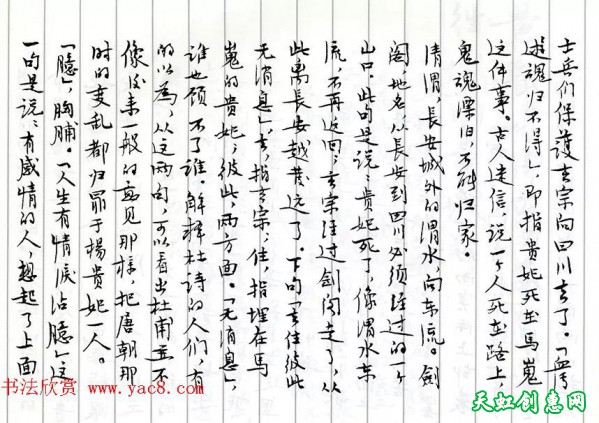 士兵们保护玄宗向四川去了。「血污
遊魂归不得」，即指贵妃死在马嵬
这件事。古人迷信，说一个人死在路上，
鬼魂漂泊，不能归家。
清渭，长安城外的渭水，向东流。剑
阁，地名，从长安到四川必须经过的一个
山口。此句是说：贵妃死了，像渭水东
流，不再返回；玄宗经过剑阁走了，从
此离长安越发远了。下句「去住彼此
无消息」，去，指玄宗；住，指埋在马
嵬的贵妃，彼此，两方面。「无消息」，
谁也顾不了谁。解释杜诗的人们，有
的以为，从这两句，可以看出杜甫并不
像后来一般的意见那样，把唐朝那
时的变乱都归罪于杨贵妃一人。
「臆」，胸脯。「人生有情泪沾臆」这
一句是说：有感情的人，想起了上面
书法欣赏 www.yac8.com
天虹创惠网